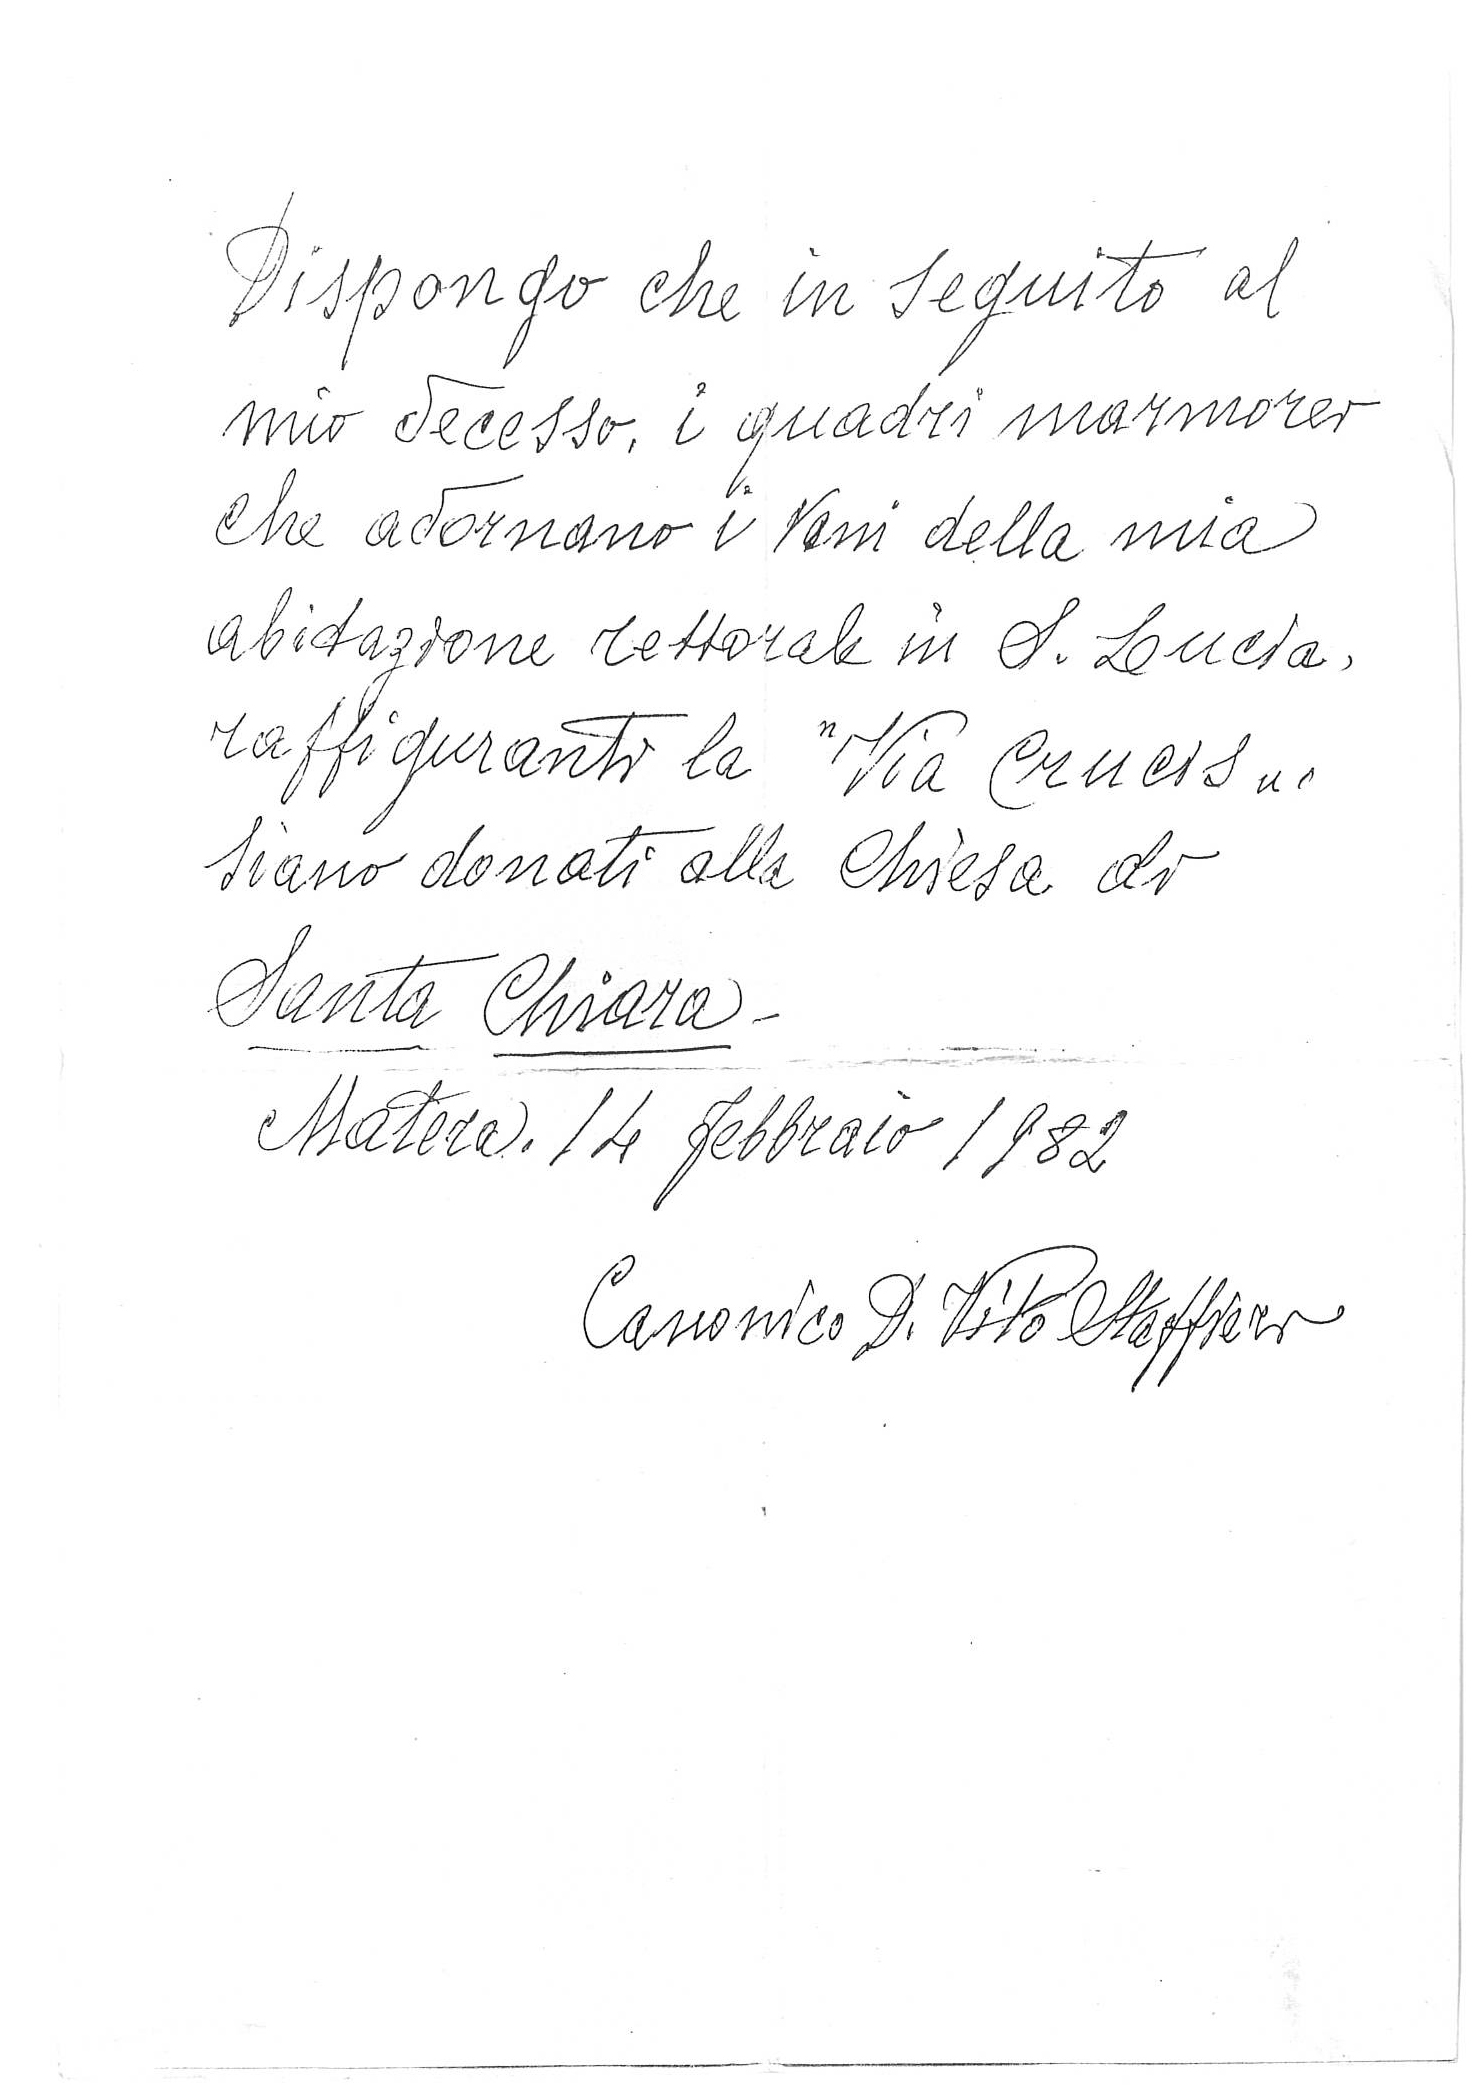 Dispongo che in seguito al
mio decesso, i quadri marmorei
che adornano i vani della mia
abitazione rettorale in S. Lucia,
raffiguranti la "Via Crucis",
siano donati alla Chiesa di
Santa Chiara-
Matera. 14 febbraio 1982
Canonico D. Vito Staffieri